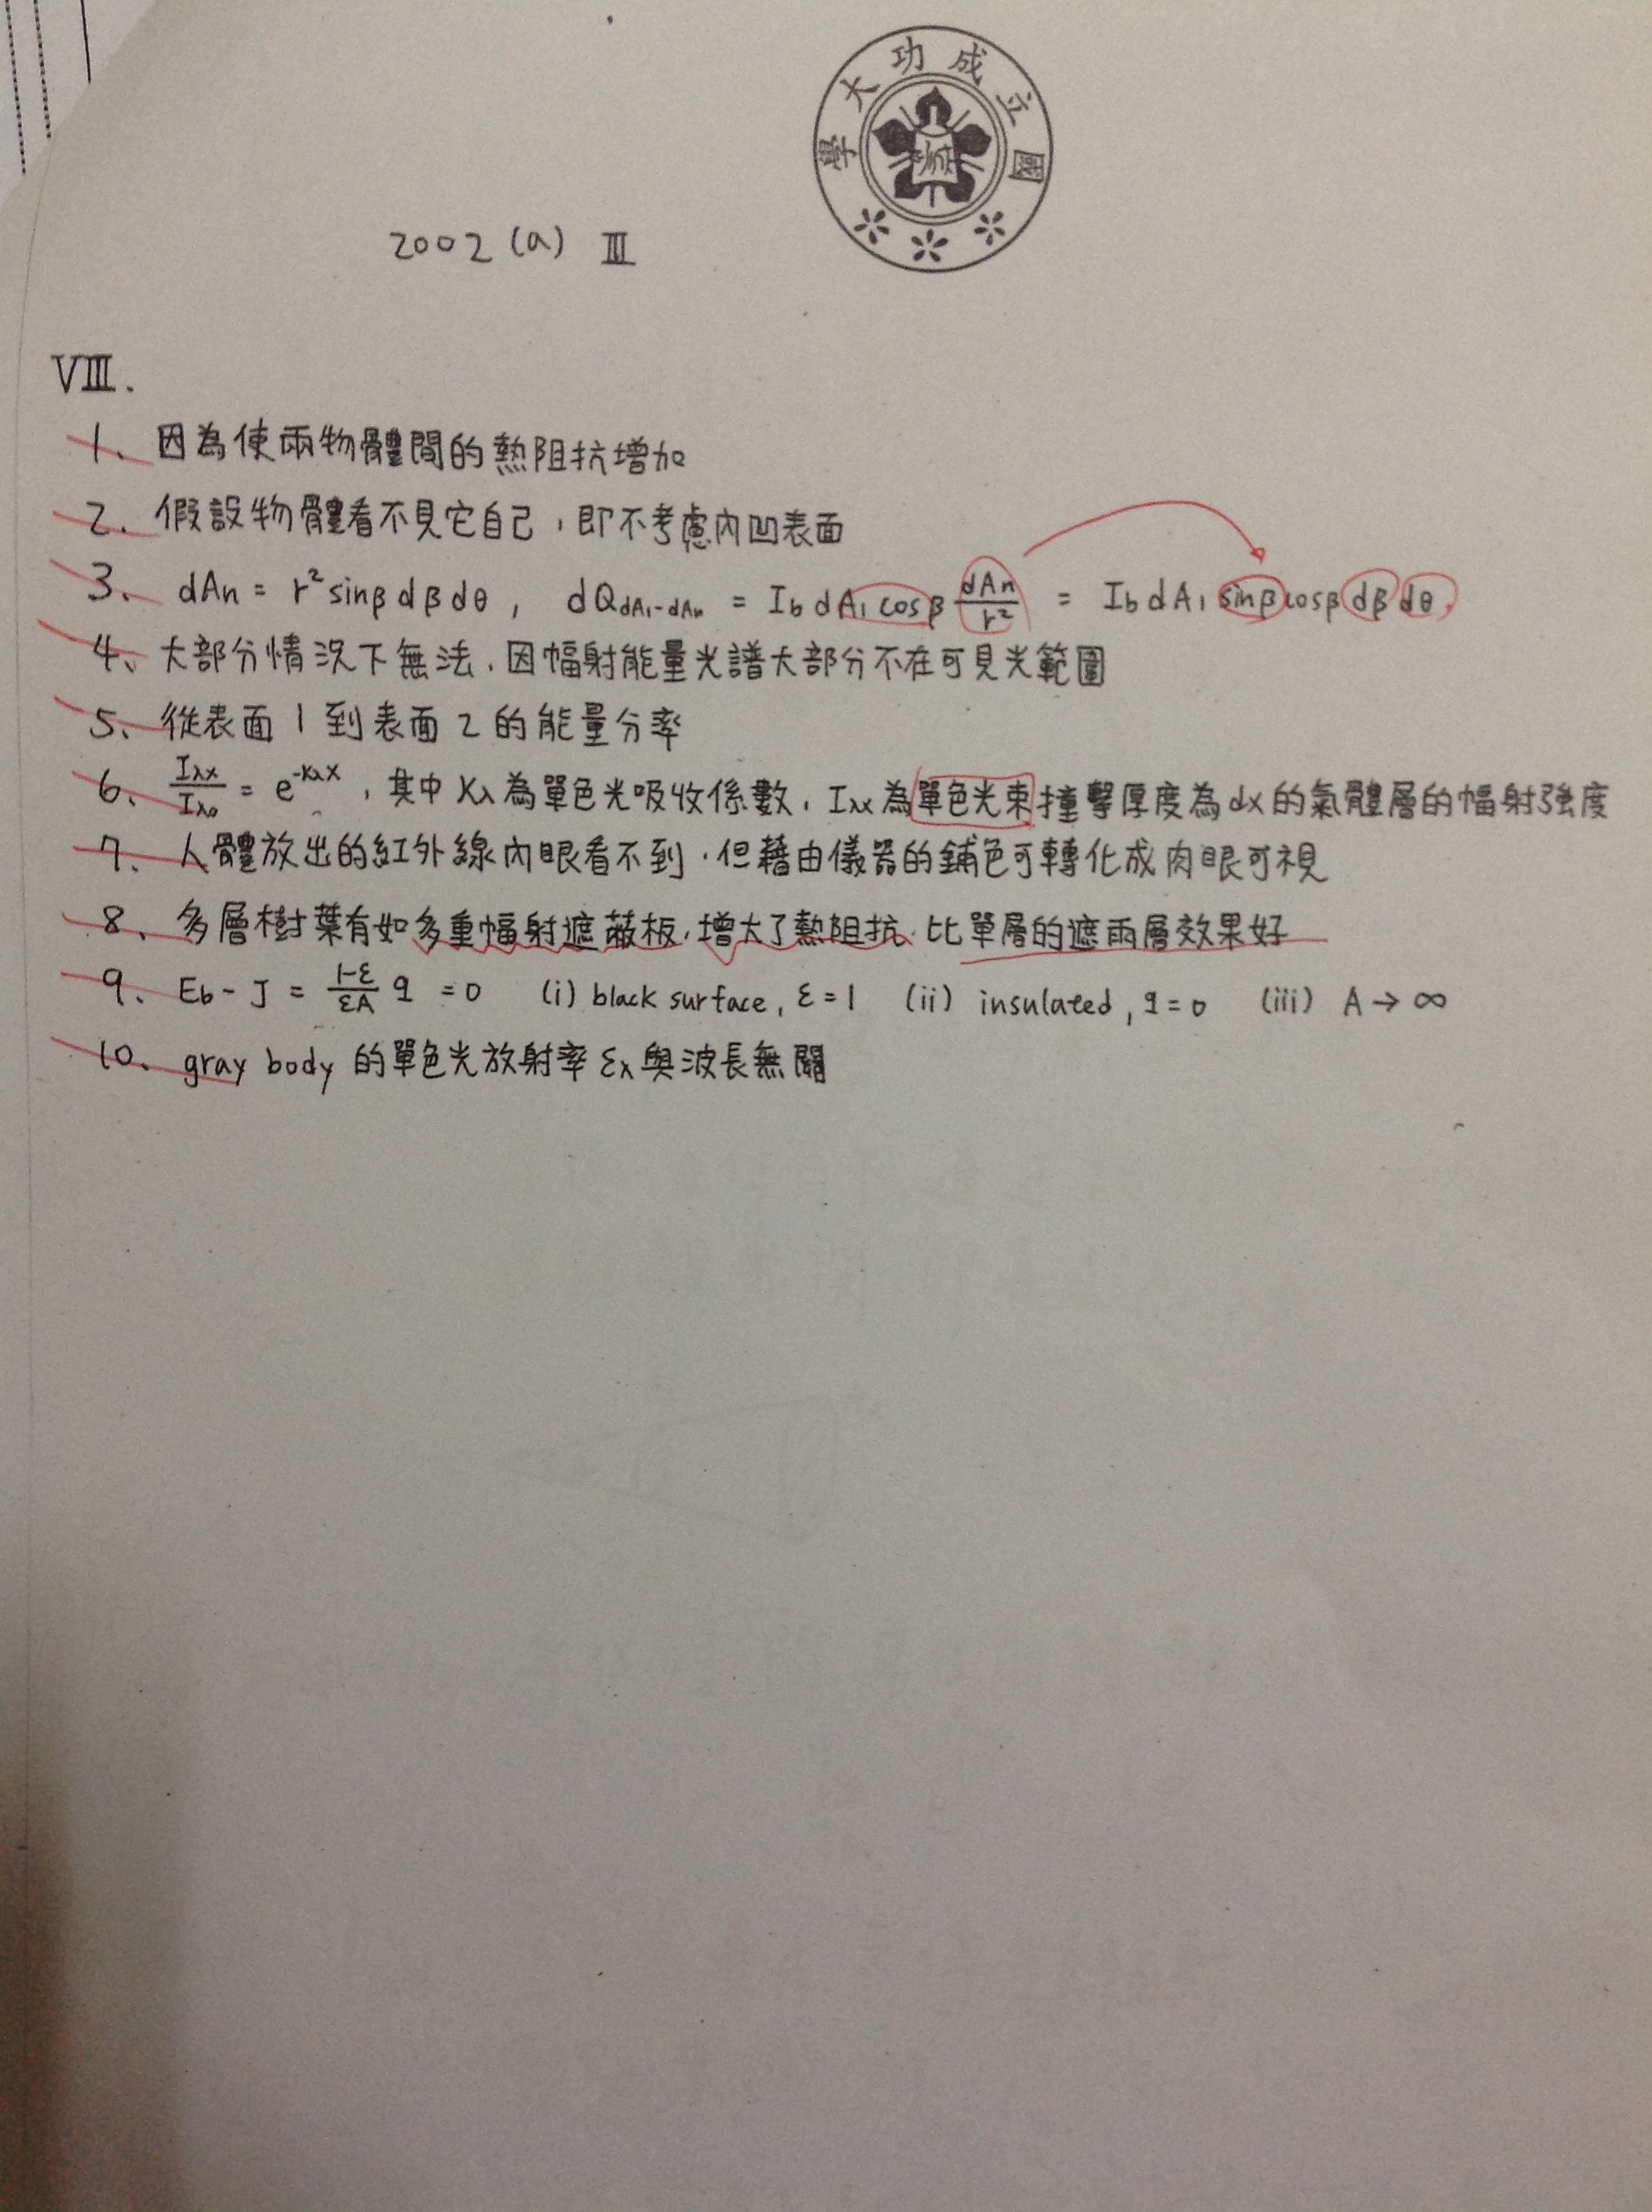 國立成功大學
2002 (a) Ⅲ
Ⅷ.
1、因為使兩物體間的熱阻抗增加
2、假設物體看不見它自己,即不考慮內凹表面
3、dAn = r² sinβ dβ dθ , dQdA₁-dAn = Ib dA₁ cosβ dAn/r² = Ib dA₁ sinβ cosβ dβ dθ
4、大部分情況下無法,因幅射能量光譜大部分不在可見光範圍
5、從表面1到表面2的能量分率
6、Iλx/Iλo = e^-Kλx , 其中 Kλ 為單色光吸收係數, Iλx 為單色光束撞擊厚度為dx的氣體層的幅射強度
7、人體放出的紅外線內眼看不到,但藉由儀器的鋪色可轉化成肉眼可視
8、多層樹葉有如多重幅射遮蔽板,增大了熱阻抗,比單層的遮雨層效果好
9、Eb - J = 1-ε/εA q = 0 (i) black surface, ε = 1 (ii) insulated, q = 0 (iii) A → ∞
10、gray body 的單色光放射率 ελ 與波長無關